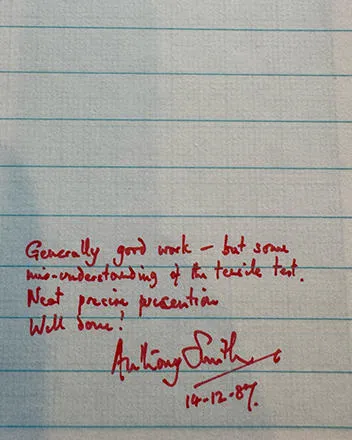 Generally good work – but some
mis-understanding of the tensile test.
Neat precise presention
Well done!
Anthony Smith
14-12-87.